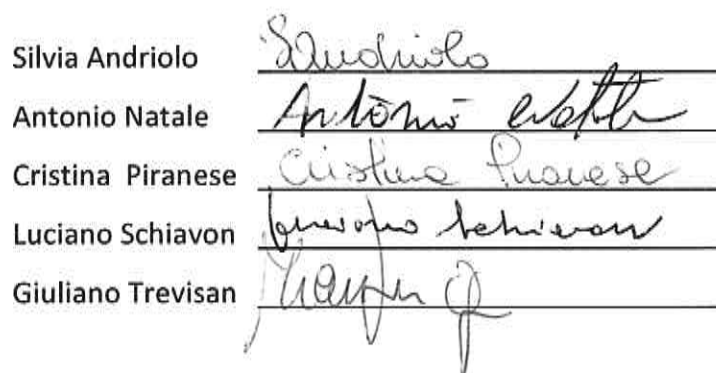 Silvia Andriolo SAndriolo
Antonio Natale Antonio Natale
Cristina Piranese Cristina Piranese
Luciano Schiavon Luciano Schiavon
Giuliano Trevisan